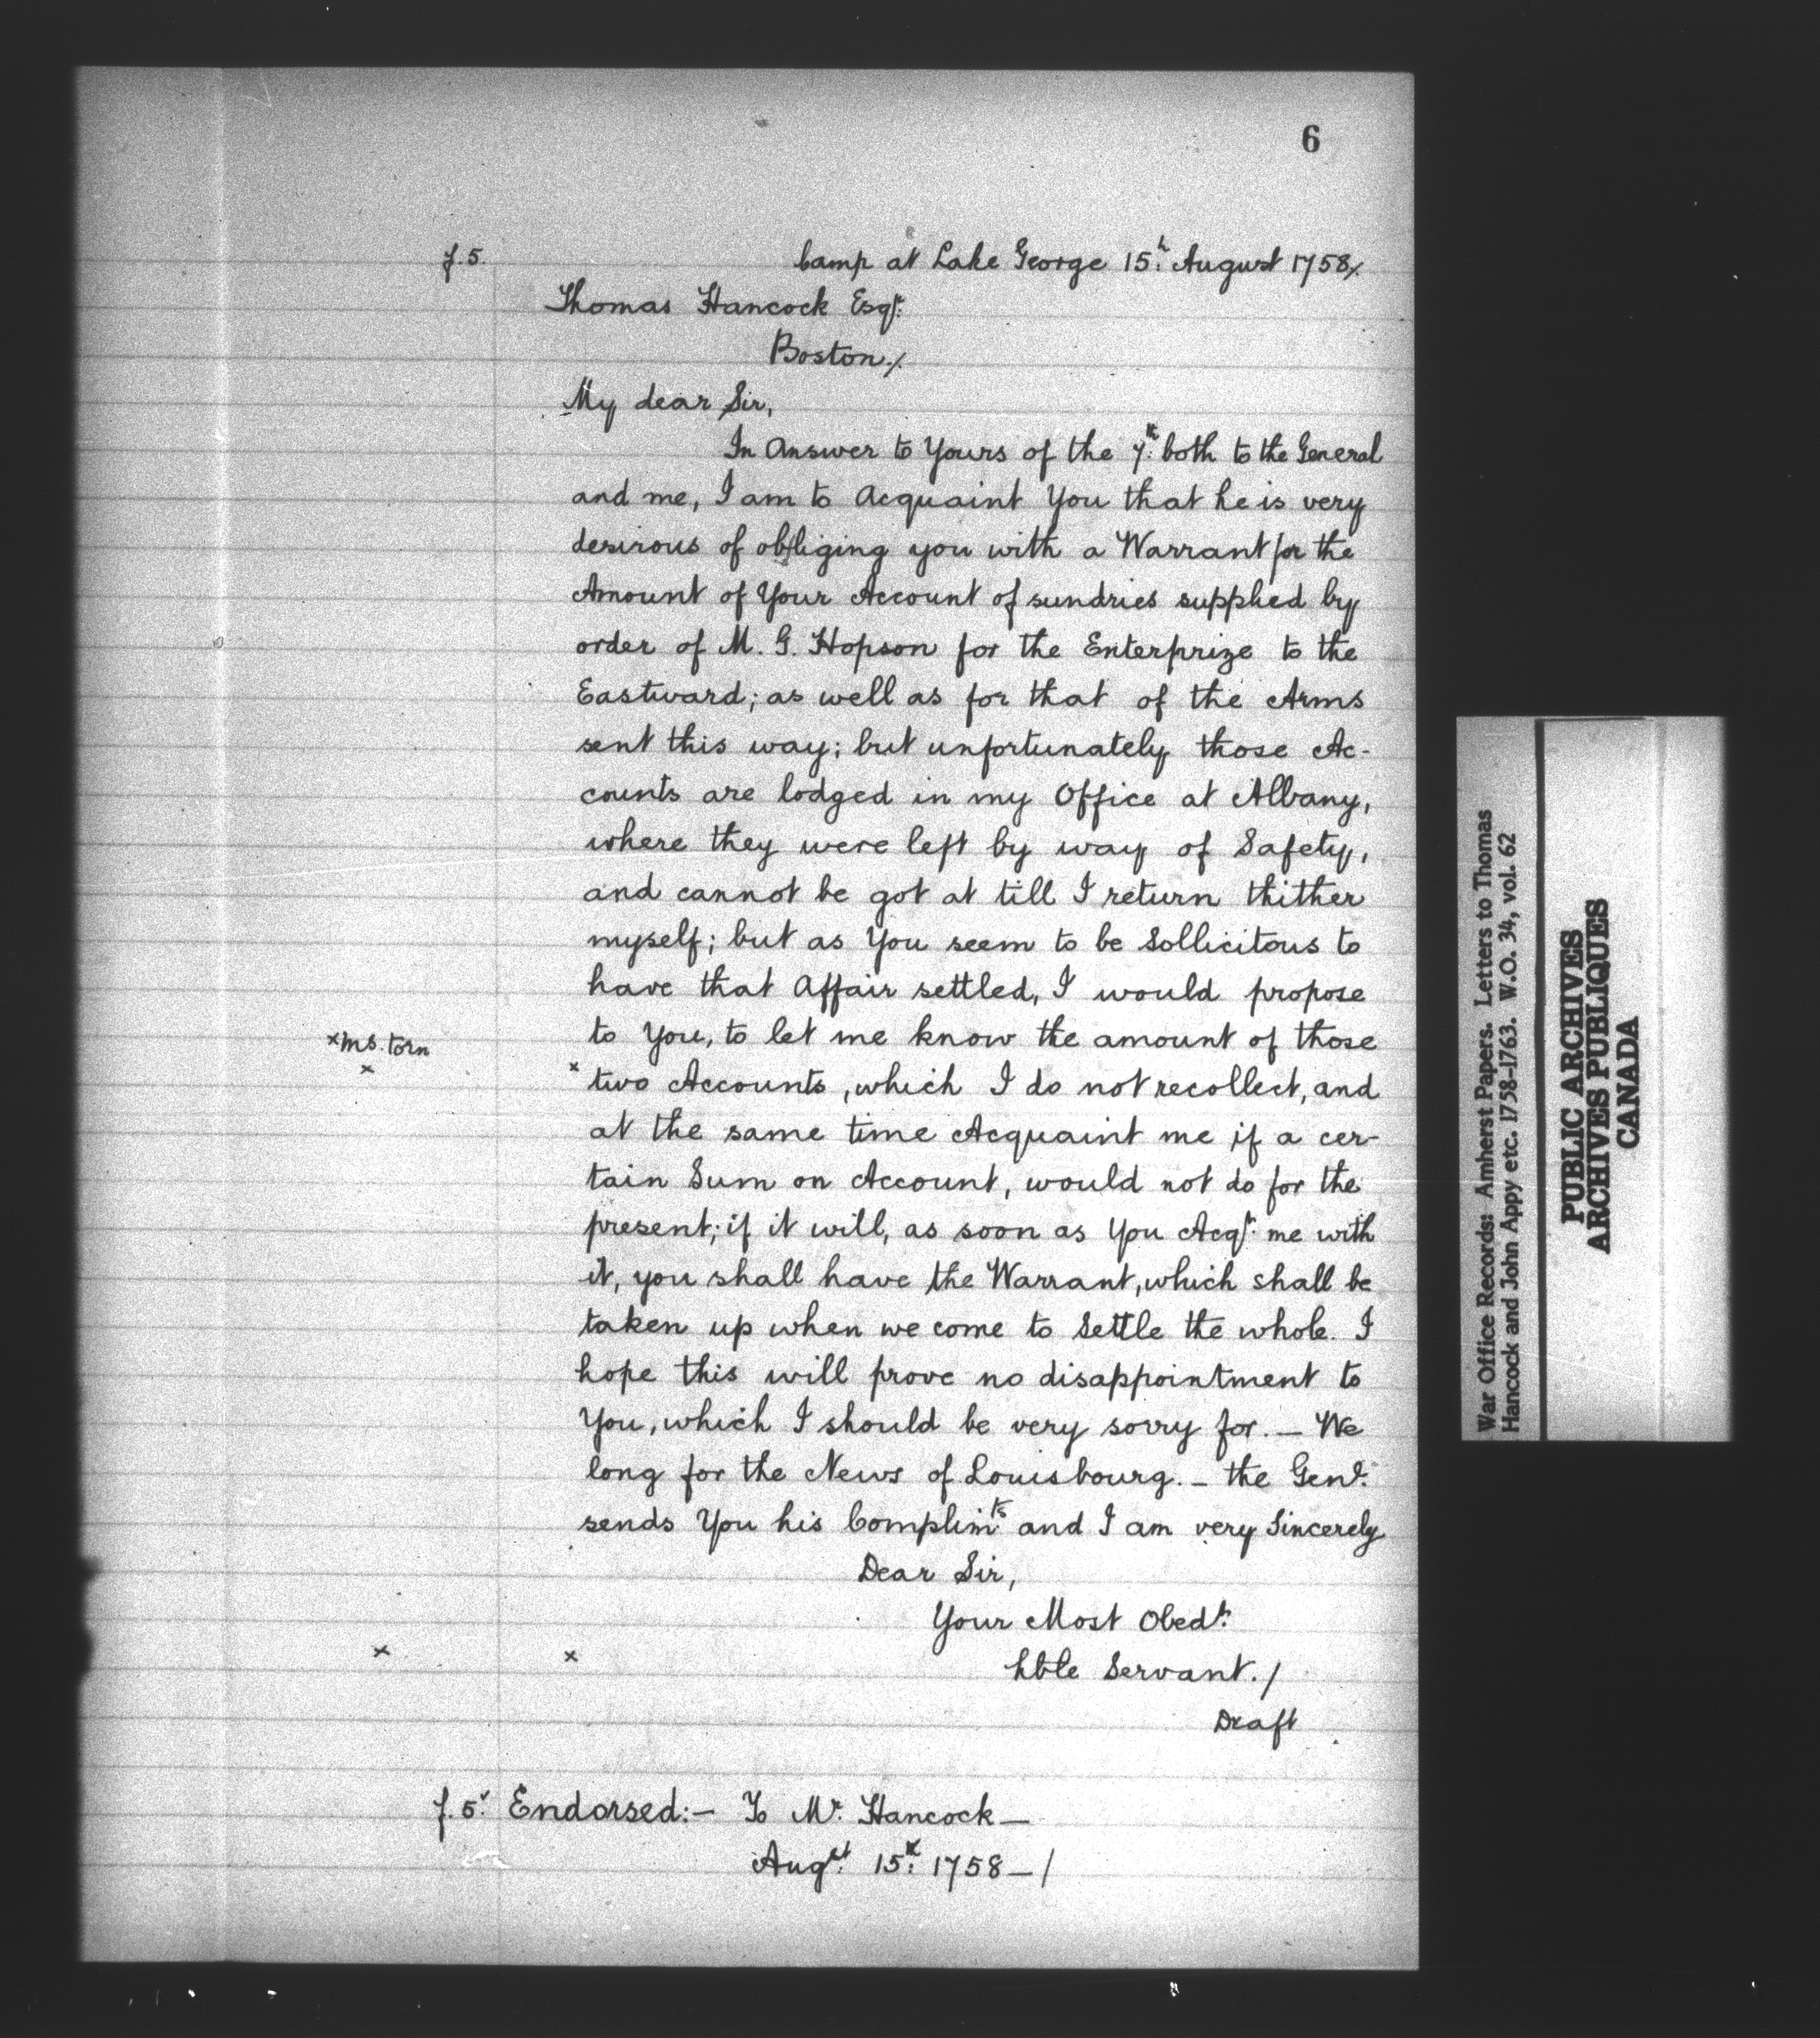 6
f.5. Camp at Lake George 15th August 1758/.
Thomas Hancock Esqr.
Boston./.
My dear Sir,
In Answer to Yours of the 7th both to the General
and me, I am to Acquaint You that he is very
desirous of obliging you with a Warrant for the
Amount of Your Account of sundries supplied by
order of M. G. Hopson for the Enterprize to the
Eastward; as well as for that of the Arms
sent this way; but unfortunately those Ac-
counts are lodged in my Office at Albany,
where they were left by way of Safety,
and cannot be got at till I return thither
myself; but as You seem to be Sollicitous to
have that Affair settled, I would propose
to You, to let me know the amount of those
x ms. torn
x
x two Accounts, which I do not recollect, and
at the same time Acquaint me if a cer-
tain Sum on Account, would not do for the
present; if it will, as soon as You Acqt. me with
it, you shall have the Warrant, which shall be
taken up when we come to Settle the whole. I
hope this will prove no disappointment to
You, which I should be very sorry for. – We
long for the News of Louisbourg. – the Genl.
sends You his Complimts. and I am very Sincerely
Dear Sir,
Your Most Obedt.
x x hble Servant./
Draft
f.5v. Endorsed:– To Mr. Hancock –
Augst. 15th. 1758 – /
War Office Records: Amherst Papers. Letters to Thomas
Hancock and John Appy etc. 1758-1763. W.O. 34, vol. 62
PUBLIC ARCHIVES
ARCHIVES PUBLIQUES
CANADA